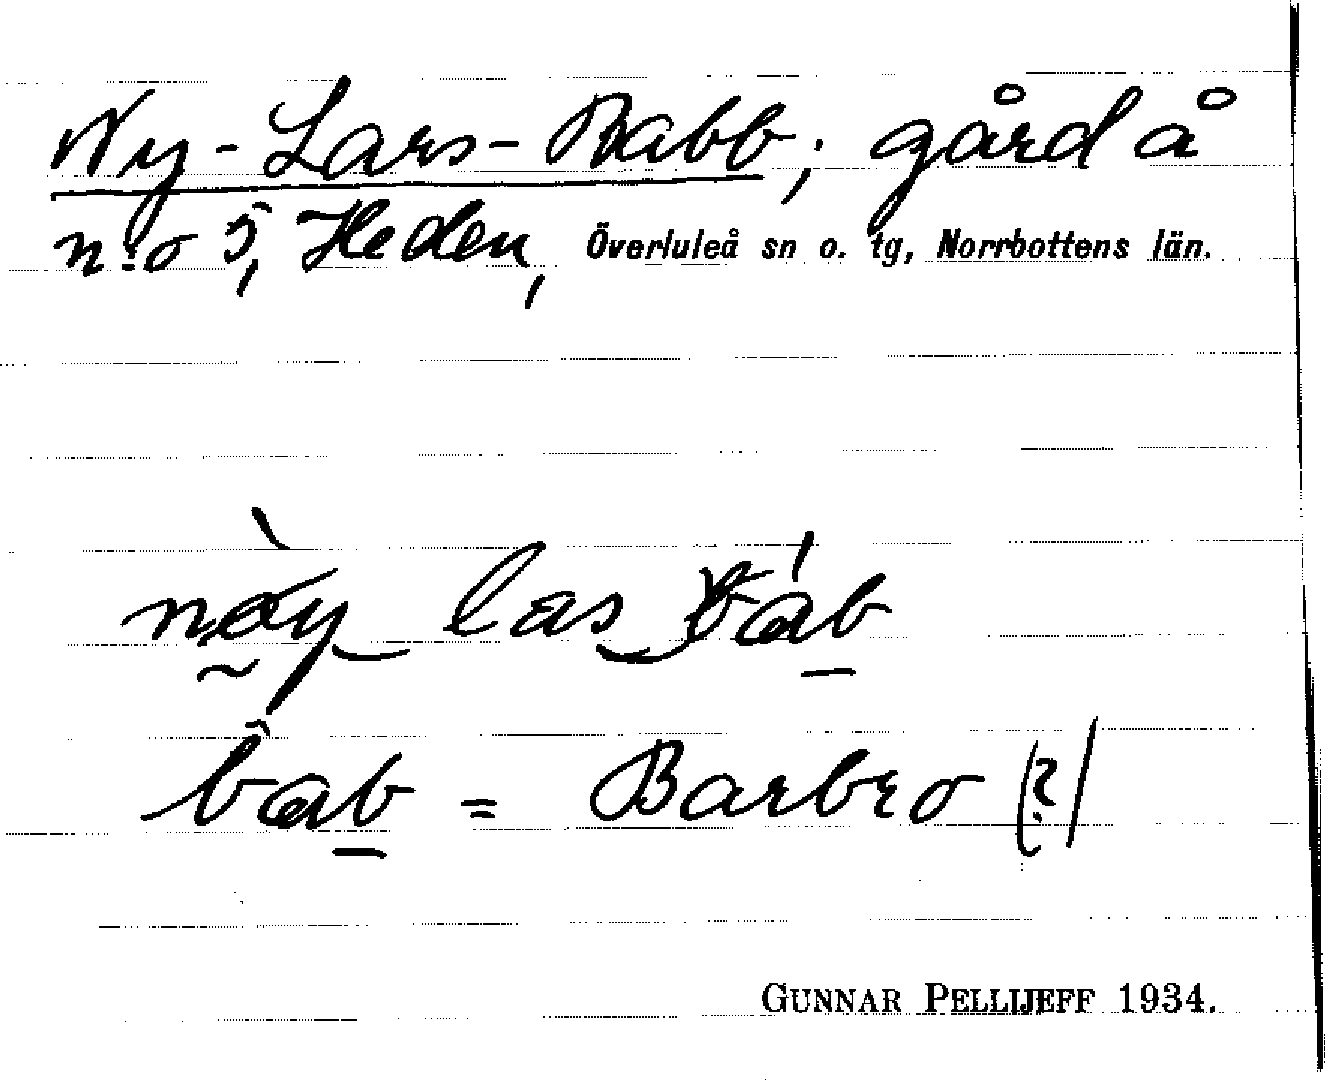 Ny-Lars-Babb; gård å
n:o 5, Heden, Överluleå sn o. tg, Norrbottens län.
nø̀y las báb
bab = Barbro (?)
GUNNAR PELLIJEFF 1934.